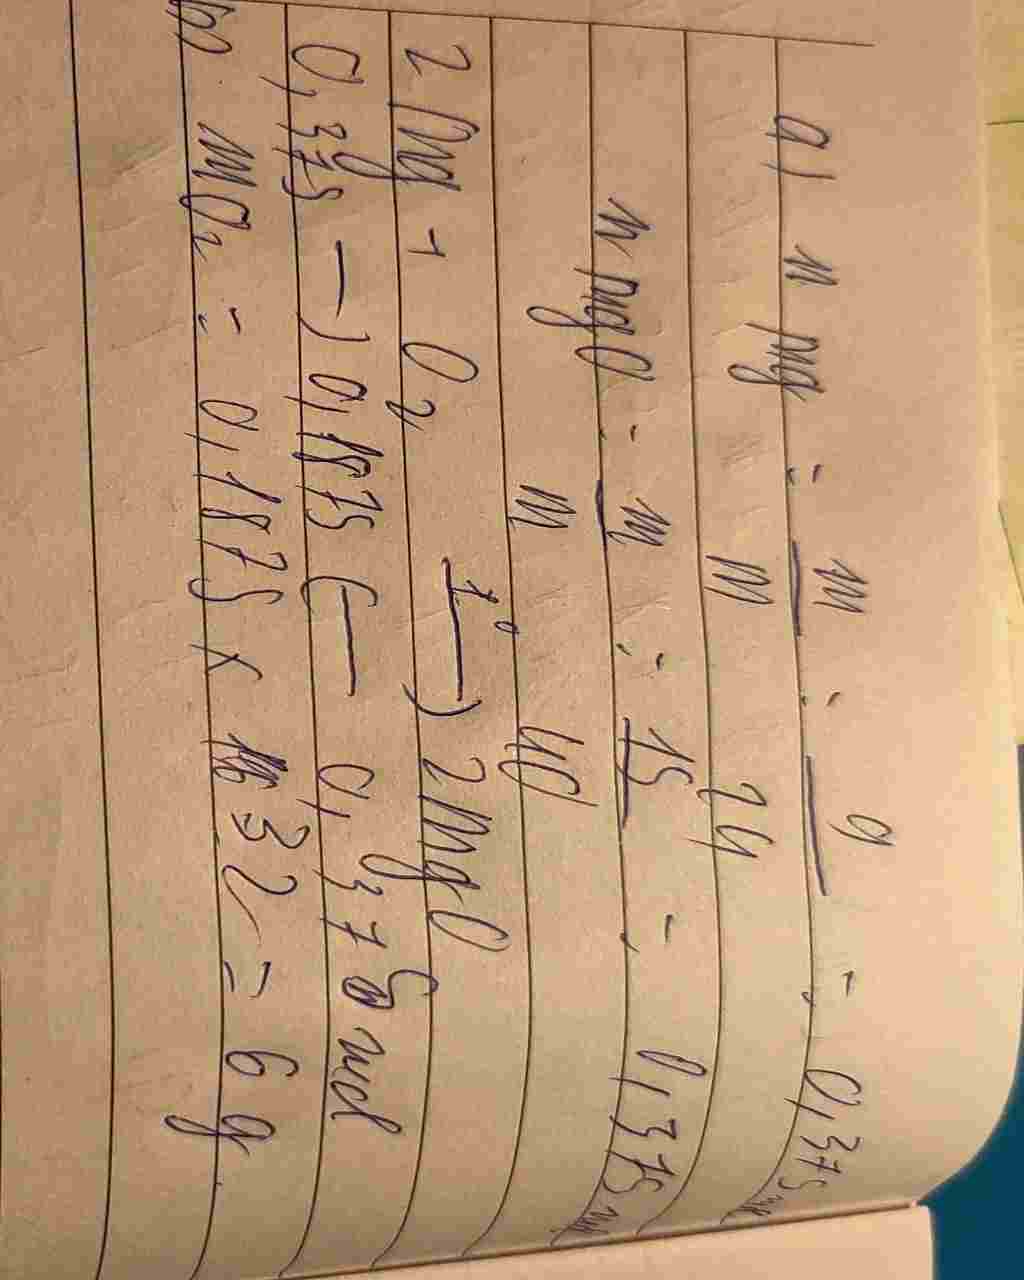 a) n Mg = m/M = 9/24 = 0,375 mol
n MgO = m/M = 15/40 = 0,375 mol
2 Mg + O2 —t°→ 2 MgO
0,375 → 0,1875 ← 0,375 mol
b) mO2 = 0,1875 x 32 = 6 g